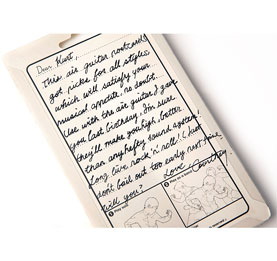 Dear Kurt,
This air guitar postcard's
got picks for all styles,
which will satisfy your
musical appetite, no doubt.
Use with the air guitar I gave
you last birthday, I'm sure
they'll make you high, better
than any hefty sound system!
Long live rock 'n' roll! (But
don't bail out too early next
will you?
Love, Courtney